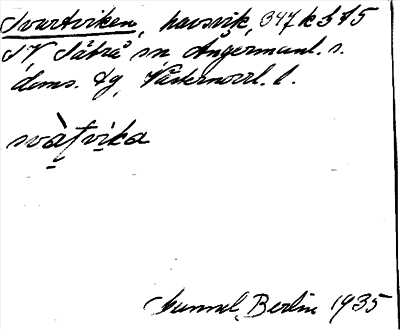 Svartviken, havsvik, 347 k 3 d 5
SV Säbrå sn Ångermanl. s.
doms. dg, Västernorrl. l.
svàtvika
Hummel, Berlin 1935